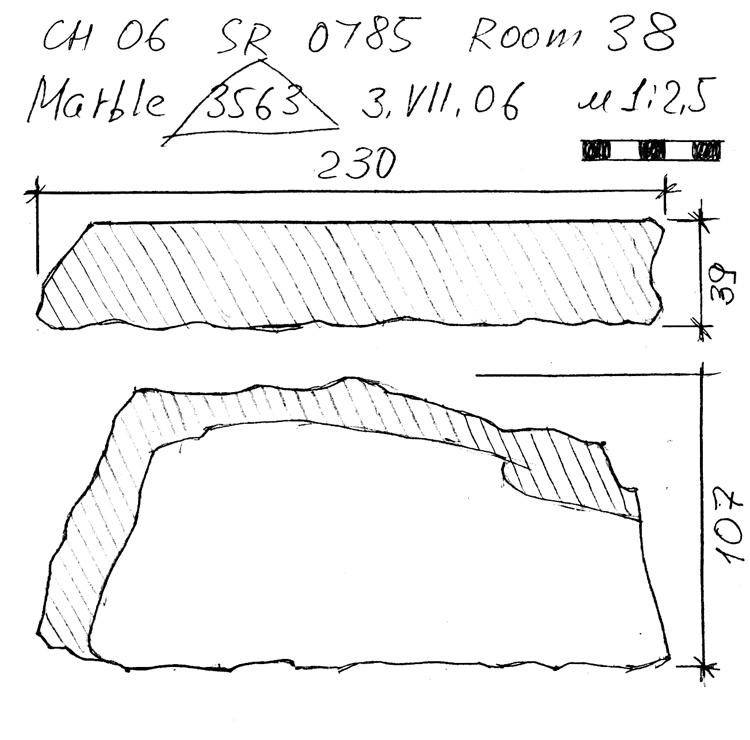 CH 06 SR 0785 Room 38
Marble 3563 3.VII.06 M 1:2,5
230
39
107